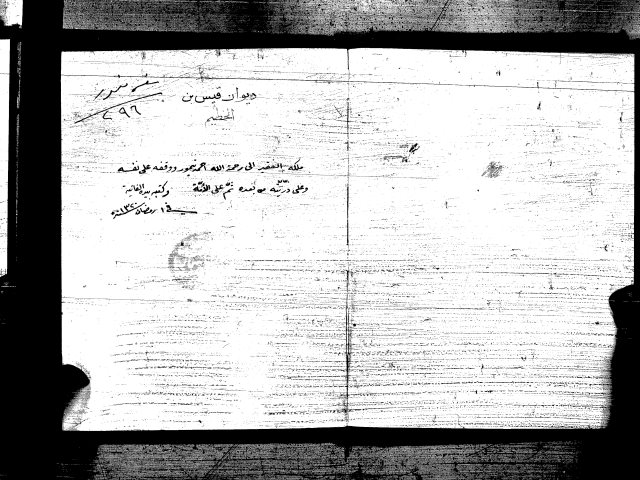 ديوان قيس بن
الخطيم
شعر تيمور
٢٩٦
ملكه الفقير الى رحمة الله احمد تيمور ووقفه على نفسه
وعلى ذريّته من بعده ثمّ على الأمّة وكتبه بيده الفانية
في ١ رمضان ١٣٢٠